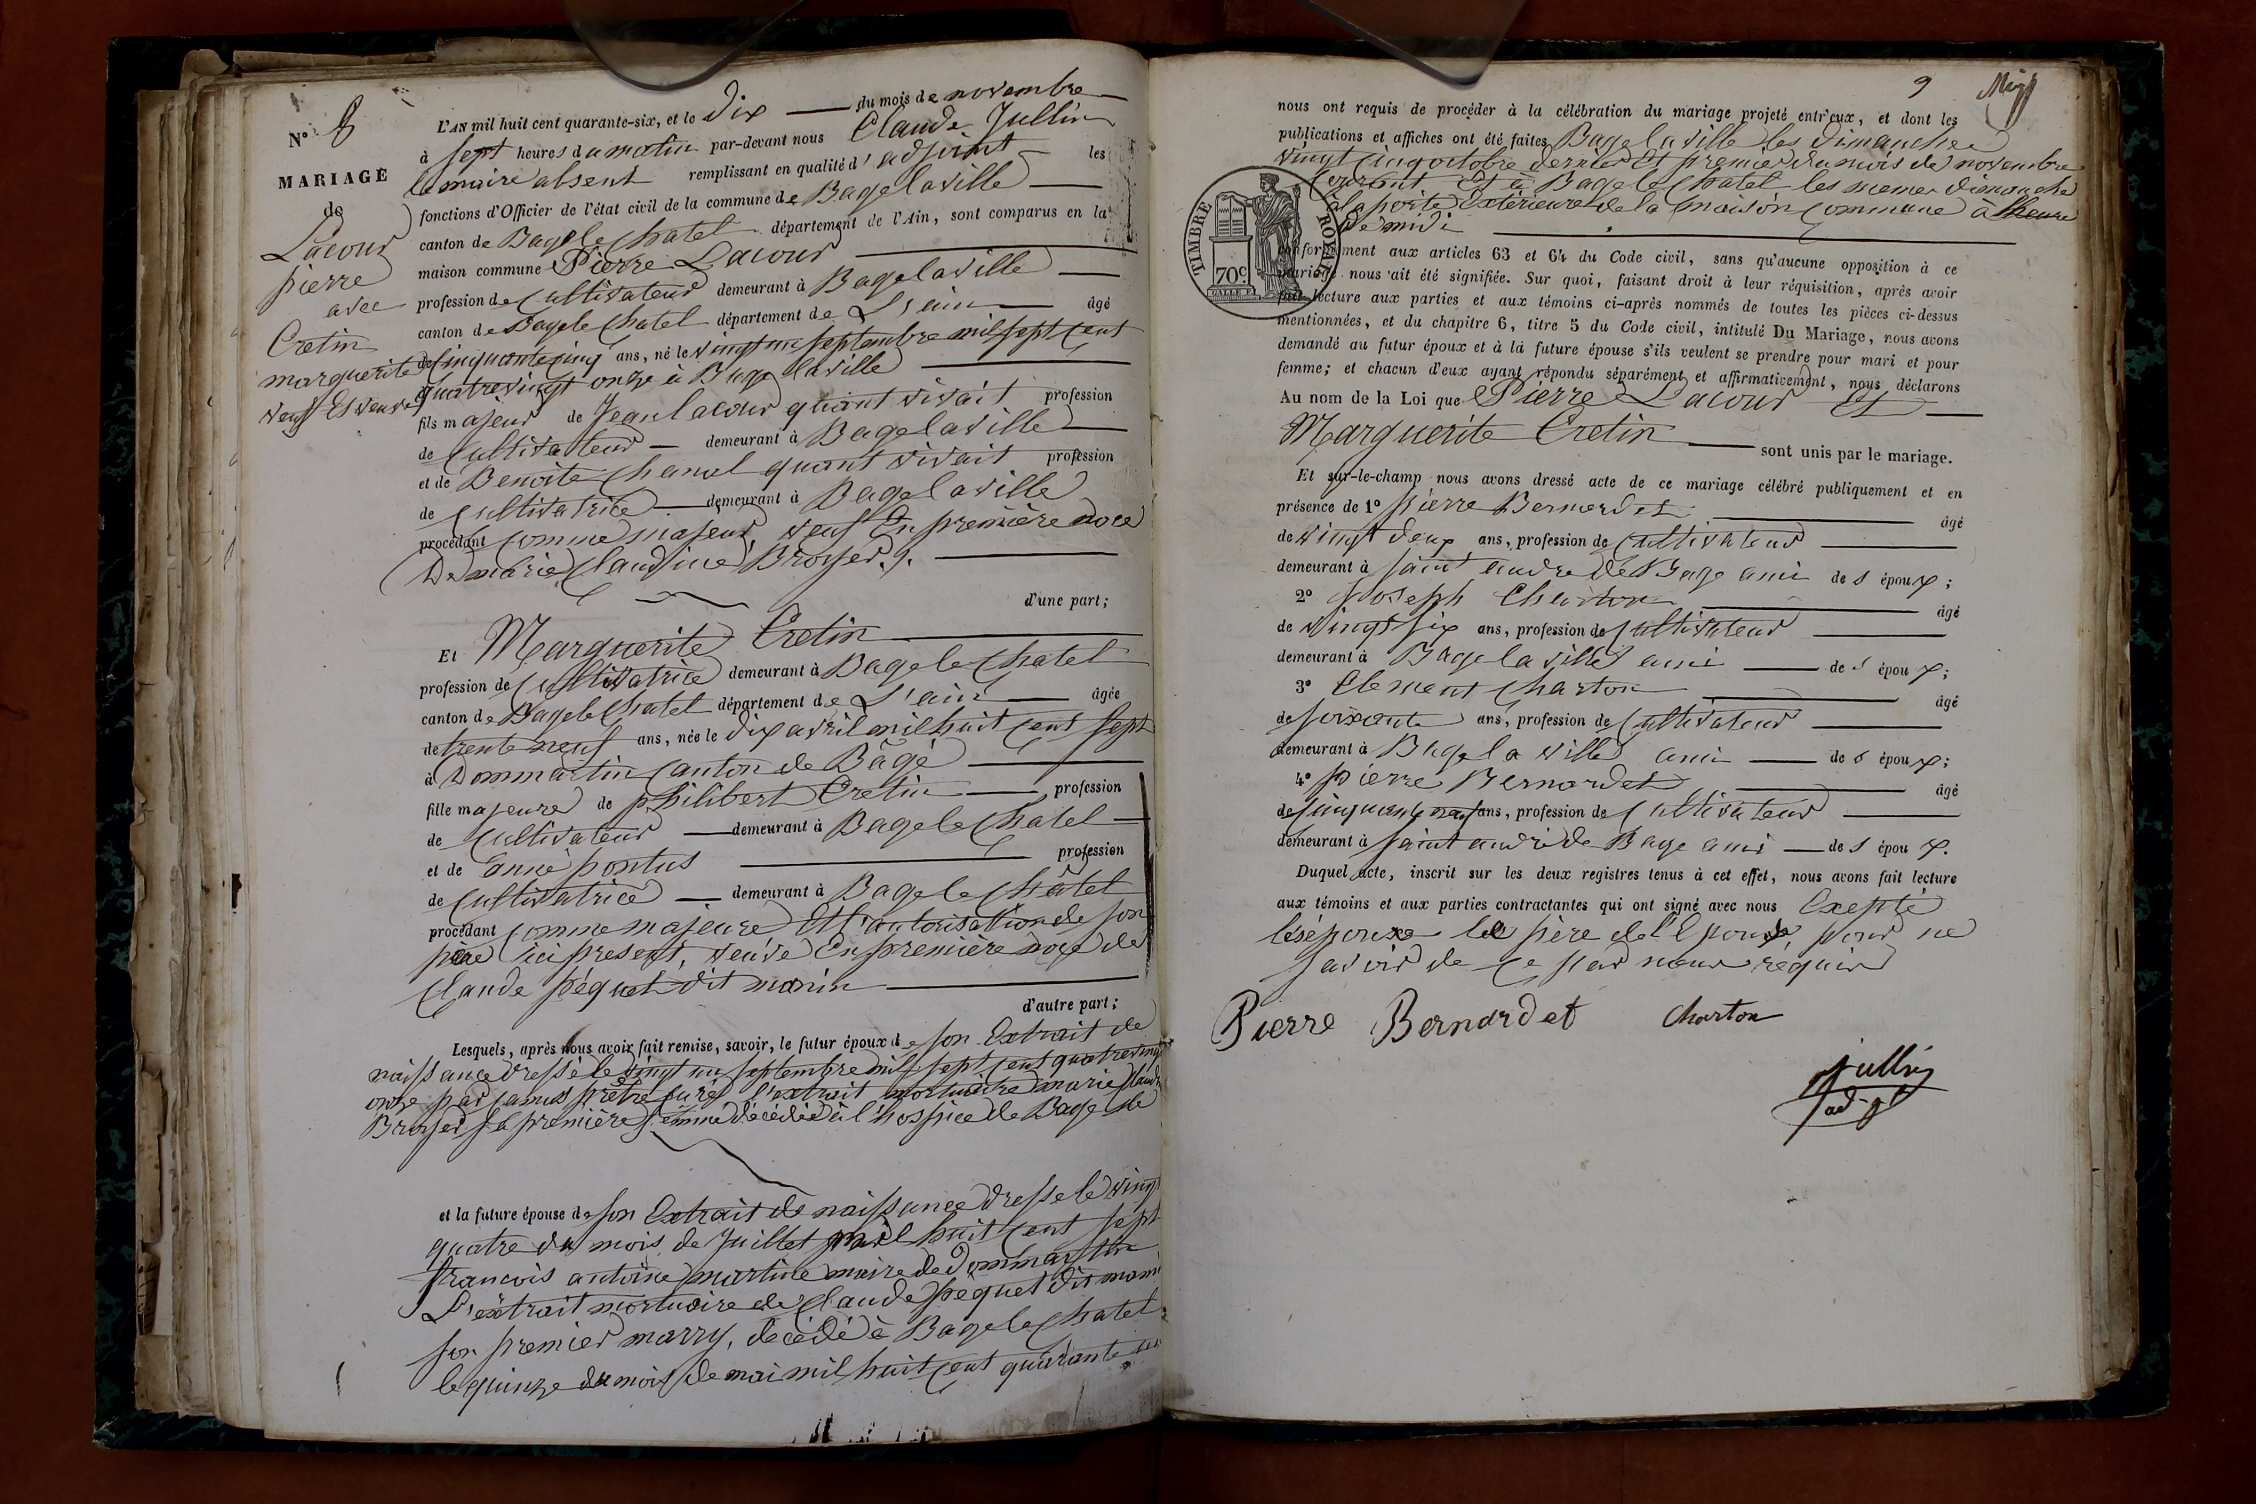 N° 8
MARIAGE
de
Lacour
pierre
avec
Cretin
marguerite
veuf Et veuve
L'AN mil huit cent quarante-six, et le dix du mois de novembre
à sept heures du matin par-devant nous Claude Jullin
le maire absent remplissant en qualité d'adjoint les
fonctions d'Officier de l'état civil de la commune de Bagelaville
canton de Bagele Chatel département de l'Ain, sont comparus en la
maison commune Pierre Lacour
profession de Cultivateur demeurant à Bagelaville
canton de Bagele Chatel département de L'ain âgé
de Cinquante cinq ans, né le vingt un septembre mil sept cent
quatre vingt onze à Bage laville
fils majeur de Jean lacour quant vivait profession
de Cultivateur demeurant à Bagelaville
et de Benoite Chanel quant vivait profession
de Cultivatrice demeurant à Bagelaville
procédant Comme majeur, veuf En première noce
De marie Claudine Broyer.
d'une part;
Et Marguerite Cretin
profession de Cultivatrice demeurant à Bagele Chatel
canton de Bagele Chatel département de L'ain âgée
de trente neuf ans, née le dix avril mil huit Cent Sept
à Dommartin Canton de Bâgé
fille majeure de philibert Cretin profession
de Cultivateur demeurant à Bagele Chatel
et de Anne pontus profession
de Cultivatrice demeurant à Bagele Châtel
procédant Comme majeure Et l'autorisation de son
père ici present, veuve En première noce de
Claude péquet dit monin
d'autre part;
Lesquels, après nous avoir fait remise, savoir, le futur époux de son Extrait de
naissance dressé le vingt un septembre mil sept cent quatre vingt
onze par Camus prêtre curé l'extrait mortuaire marie Claudi
Broyer sa première femme décédée à l'hospice de Bage le
et la future épouse de son Extrait de naissance dresse le vingt
quatre du mois de Juillet mil huit Cent Sept
francois antoine martine maire de Dommartin
L'extrait mortuaire de Claude péquet dit moni
son premier marry, décédé à Bagele Chatel
le quinze du mois de mai mil huit cent quarante
9
nous ont requis de procéder à la célébration du mariage projeté entr'eux, et dont les
publications et affiches ont été faites Bage la ville les dimanche
vingt cinq octobre dernier Et premier du mois de novembre
Courant Et à Bage le Chatel les meme dimanche
à la porte Extérieure de la maison Commune à l'heure
de midi
conformément aux articles 63 et 64 du Code civil, sans qu'aucune opposition à ce
mariage nous ait été signifiée. Sur quoi, faisant droit à leur réquisition, après avoir
fait lecture aux parties et aux témoins ci-après nommés de toutes les pièces ci-dessus
mentionnées, et du chapitre 6, titre 5 du Code civil, intitulé Du Mariage, nous avons
demandé au futur époux et à la future épouse s'ils veulent se prendre pour mari et pour
femme; et chacun d'eux ayant répondu séparément et affirmativement, nous déclarons
Au nom de la Loi que Pierre Lacour Et
Marguerite Cretin sont unis par le mariage.
Et sur-le-champ nous avons dressé acte de ce mariage célébré publiquement et en
présence de 1° pierre Bernardet âgé
de vingt deux ans, profession de Cultivateur
demeurant à saint andre de Bage ami de s époux;
2° Joseph Charton âgé
de vingt six ans, profession de Cultivateur
demeurant à Bage la ville ami de s époux;
3° Clement Charton âgé
de soixante ans, profession de Cultivateur
demeurant à Bage la ville ami de s époux;
4° pierre Bernardet âgé
de Cinquante neuf ans, profession de Cultivateur
demeurant à saint andré de Bage ami de s époux.
Duquel acte, inscrit sur les deux registres tenus à cet effet, nous avons fait lecture
aux témoins et aux parties contractantes qui ont signé avec nous Excepté
les époux le père de l'Epouse, pour ne
savoir de ce par nous requis
TIMBRE ROYAL
70c
Pierre Bernardet Charton
Jullin
adjt